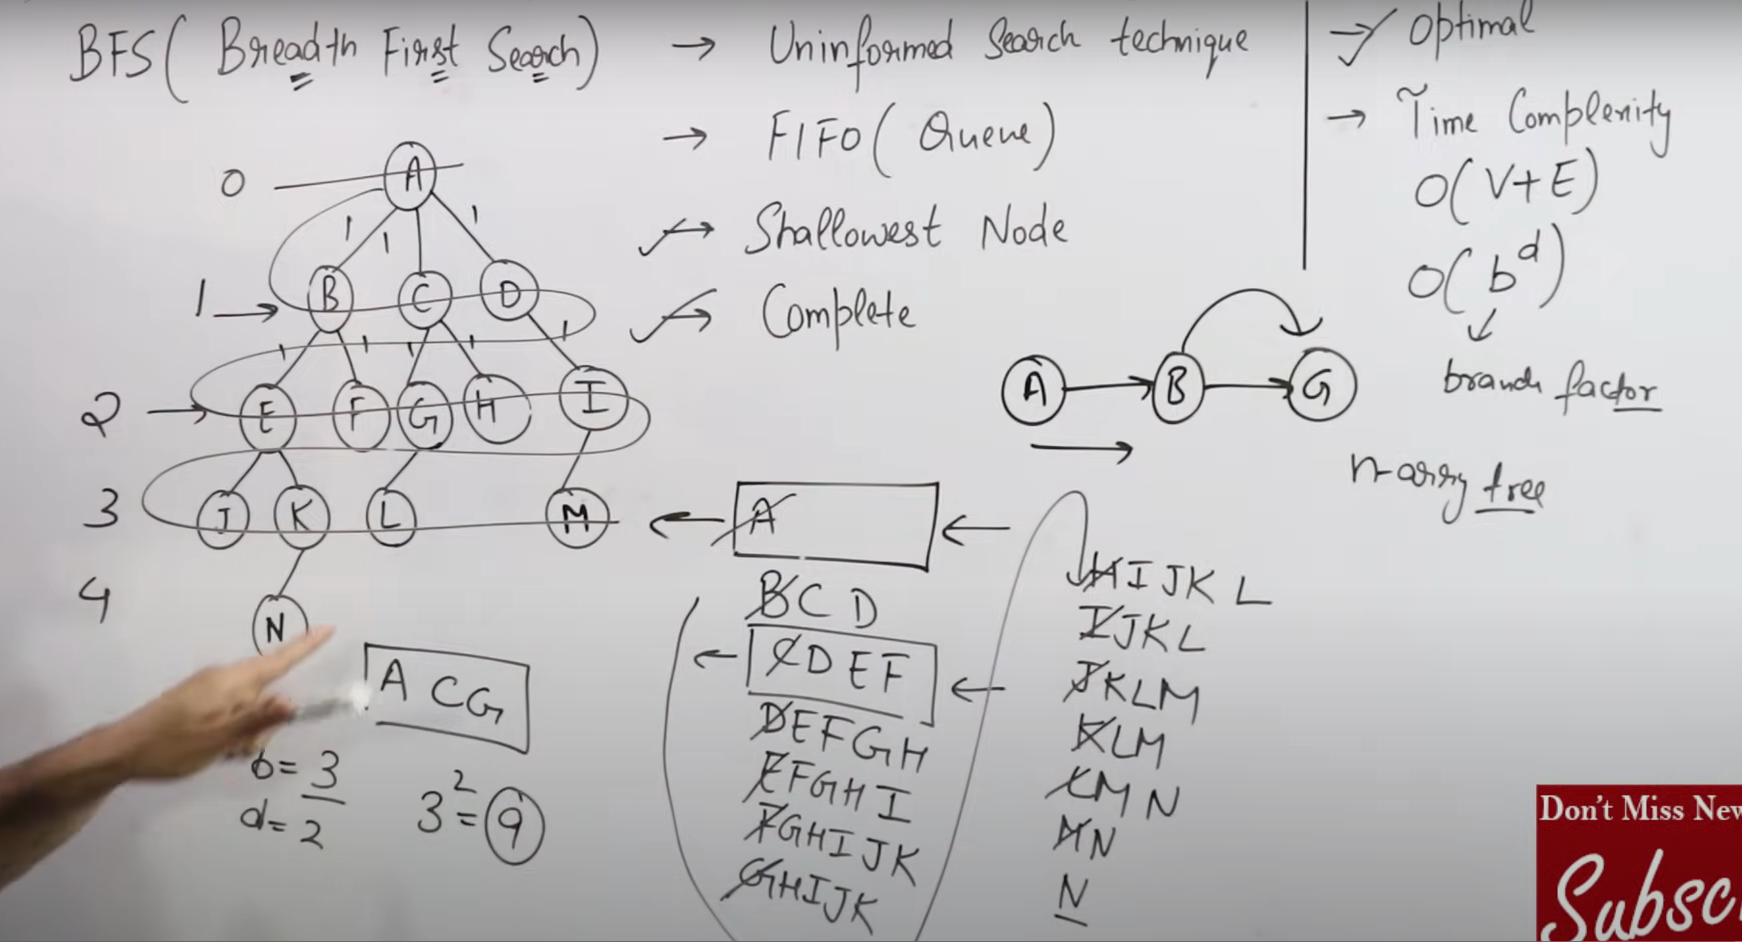 BFS( Breadth First Search)
→ Uninformed Search technique
→ FIFO( Queue)
→ Shallowest Node
→ Complete
→ Optimal
→ Time Complexity
O(V+E)
O(b^d)
branch factor
n-arry tree
0
A
1 1 1
1 →
B C D
1 1 1 1 1
2 →
E F G H I
3
J K L M
4
N
A C G
b= 3
d= 2
3^2=9
A → B → G
A
B C D
C D E F
D E F G H
E F G H I
F G H I J K
G H I J K
H I J K L
I J K L
J K L M
K L M
L M N
M N
N
Don't Miss New
Subsc